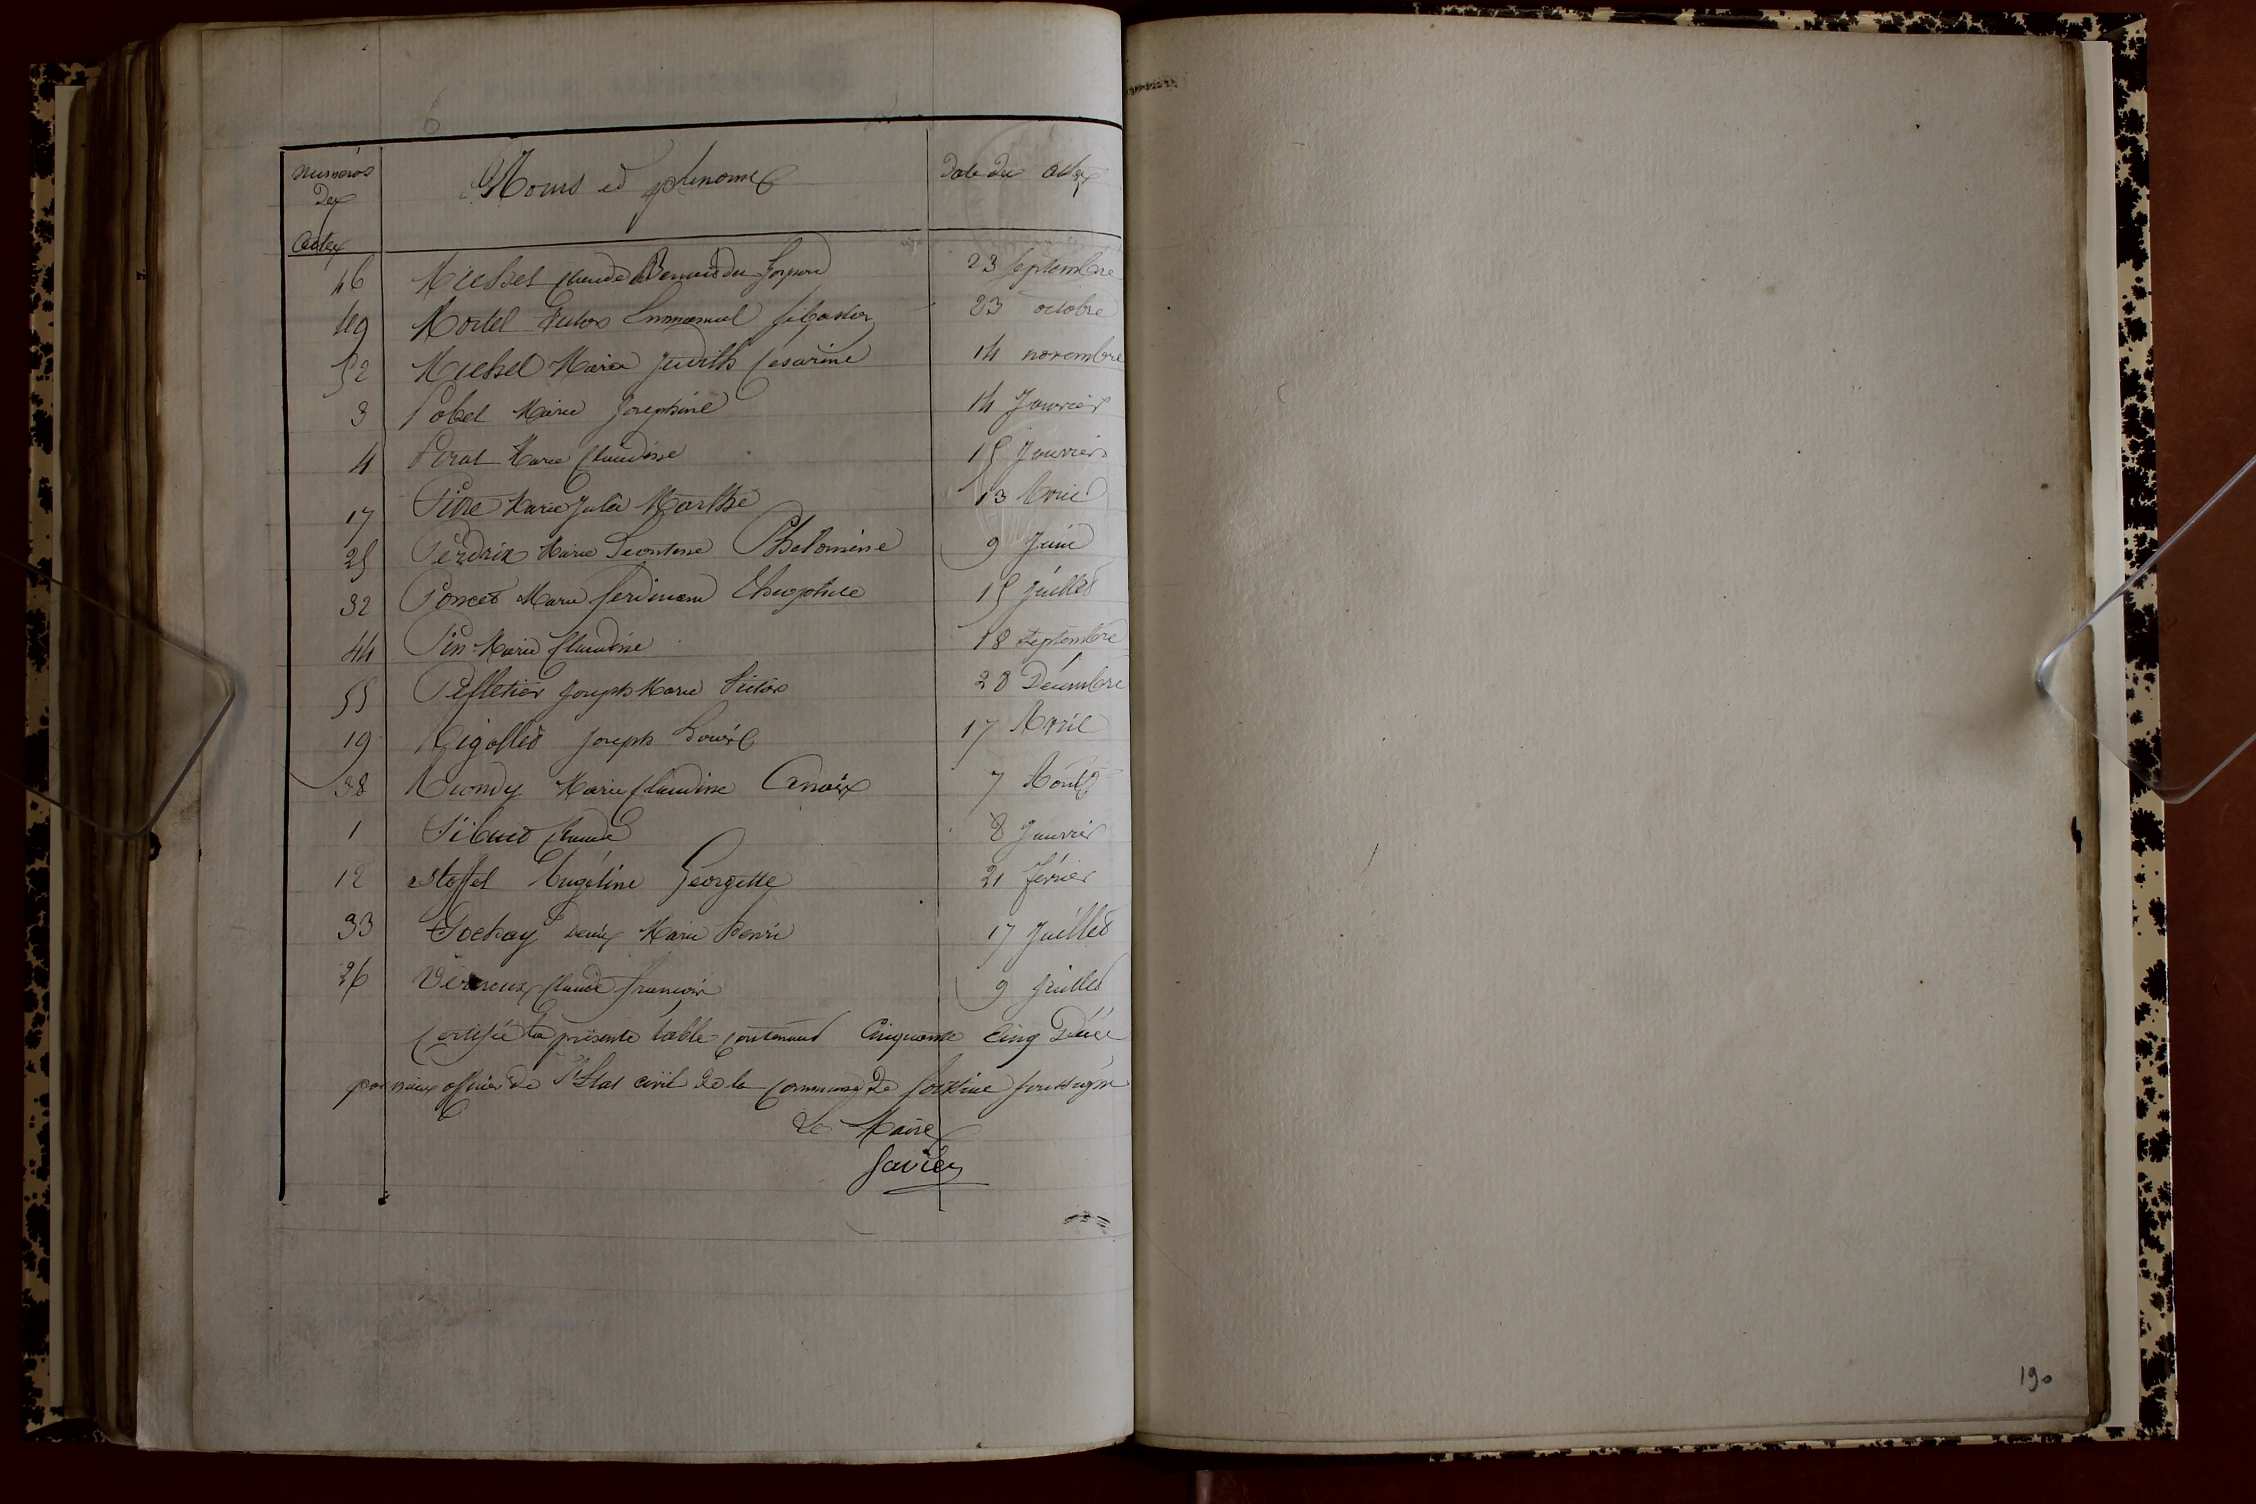 Numéros
Des
Actes
Noms et prénoms
Date des Actes
46 Michel Claude 23 Septembre
49 Mortel Victor Emmanuel 23 octobre
52 Michel Marie Judith Cesarine 14 novembre
3 Pobel Marie Josephine 14 Janvier
4 Perat Marie Claudine 15 Janvier
17 Marie Julie Marthe 13 Avril
25 Perdrix Marie Leontine Philomène 9 Juin
32 Poncet Marie Ferdinand Theophile 15 Juillet
44 Pin Marie Claudine 18 Septembre
55 Pelletier Joseph Marie Victor 28 Décembre
19 Rigollet Joseph Louis 17 Avril
38 Riondy Marie Claudine Anaïs 7 Août
1 Sibuet Claude 8 Janvier
12 Stoffel Angéline Georgette 21 février
33 Tochay Denis Marie Henri 17 Juillet
26 Verneux Claude François 9 Juillet
Certifiée la présente table contenant Cinquante Cinq
par nous officier de l'Etat civil de la commune de soussigné
Le Maire
190